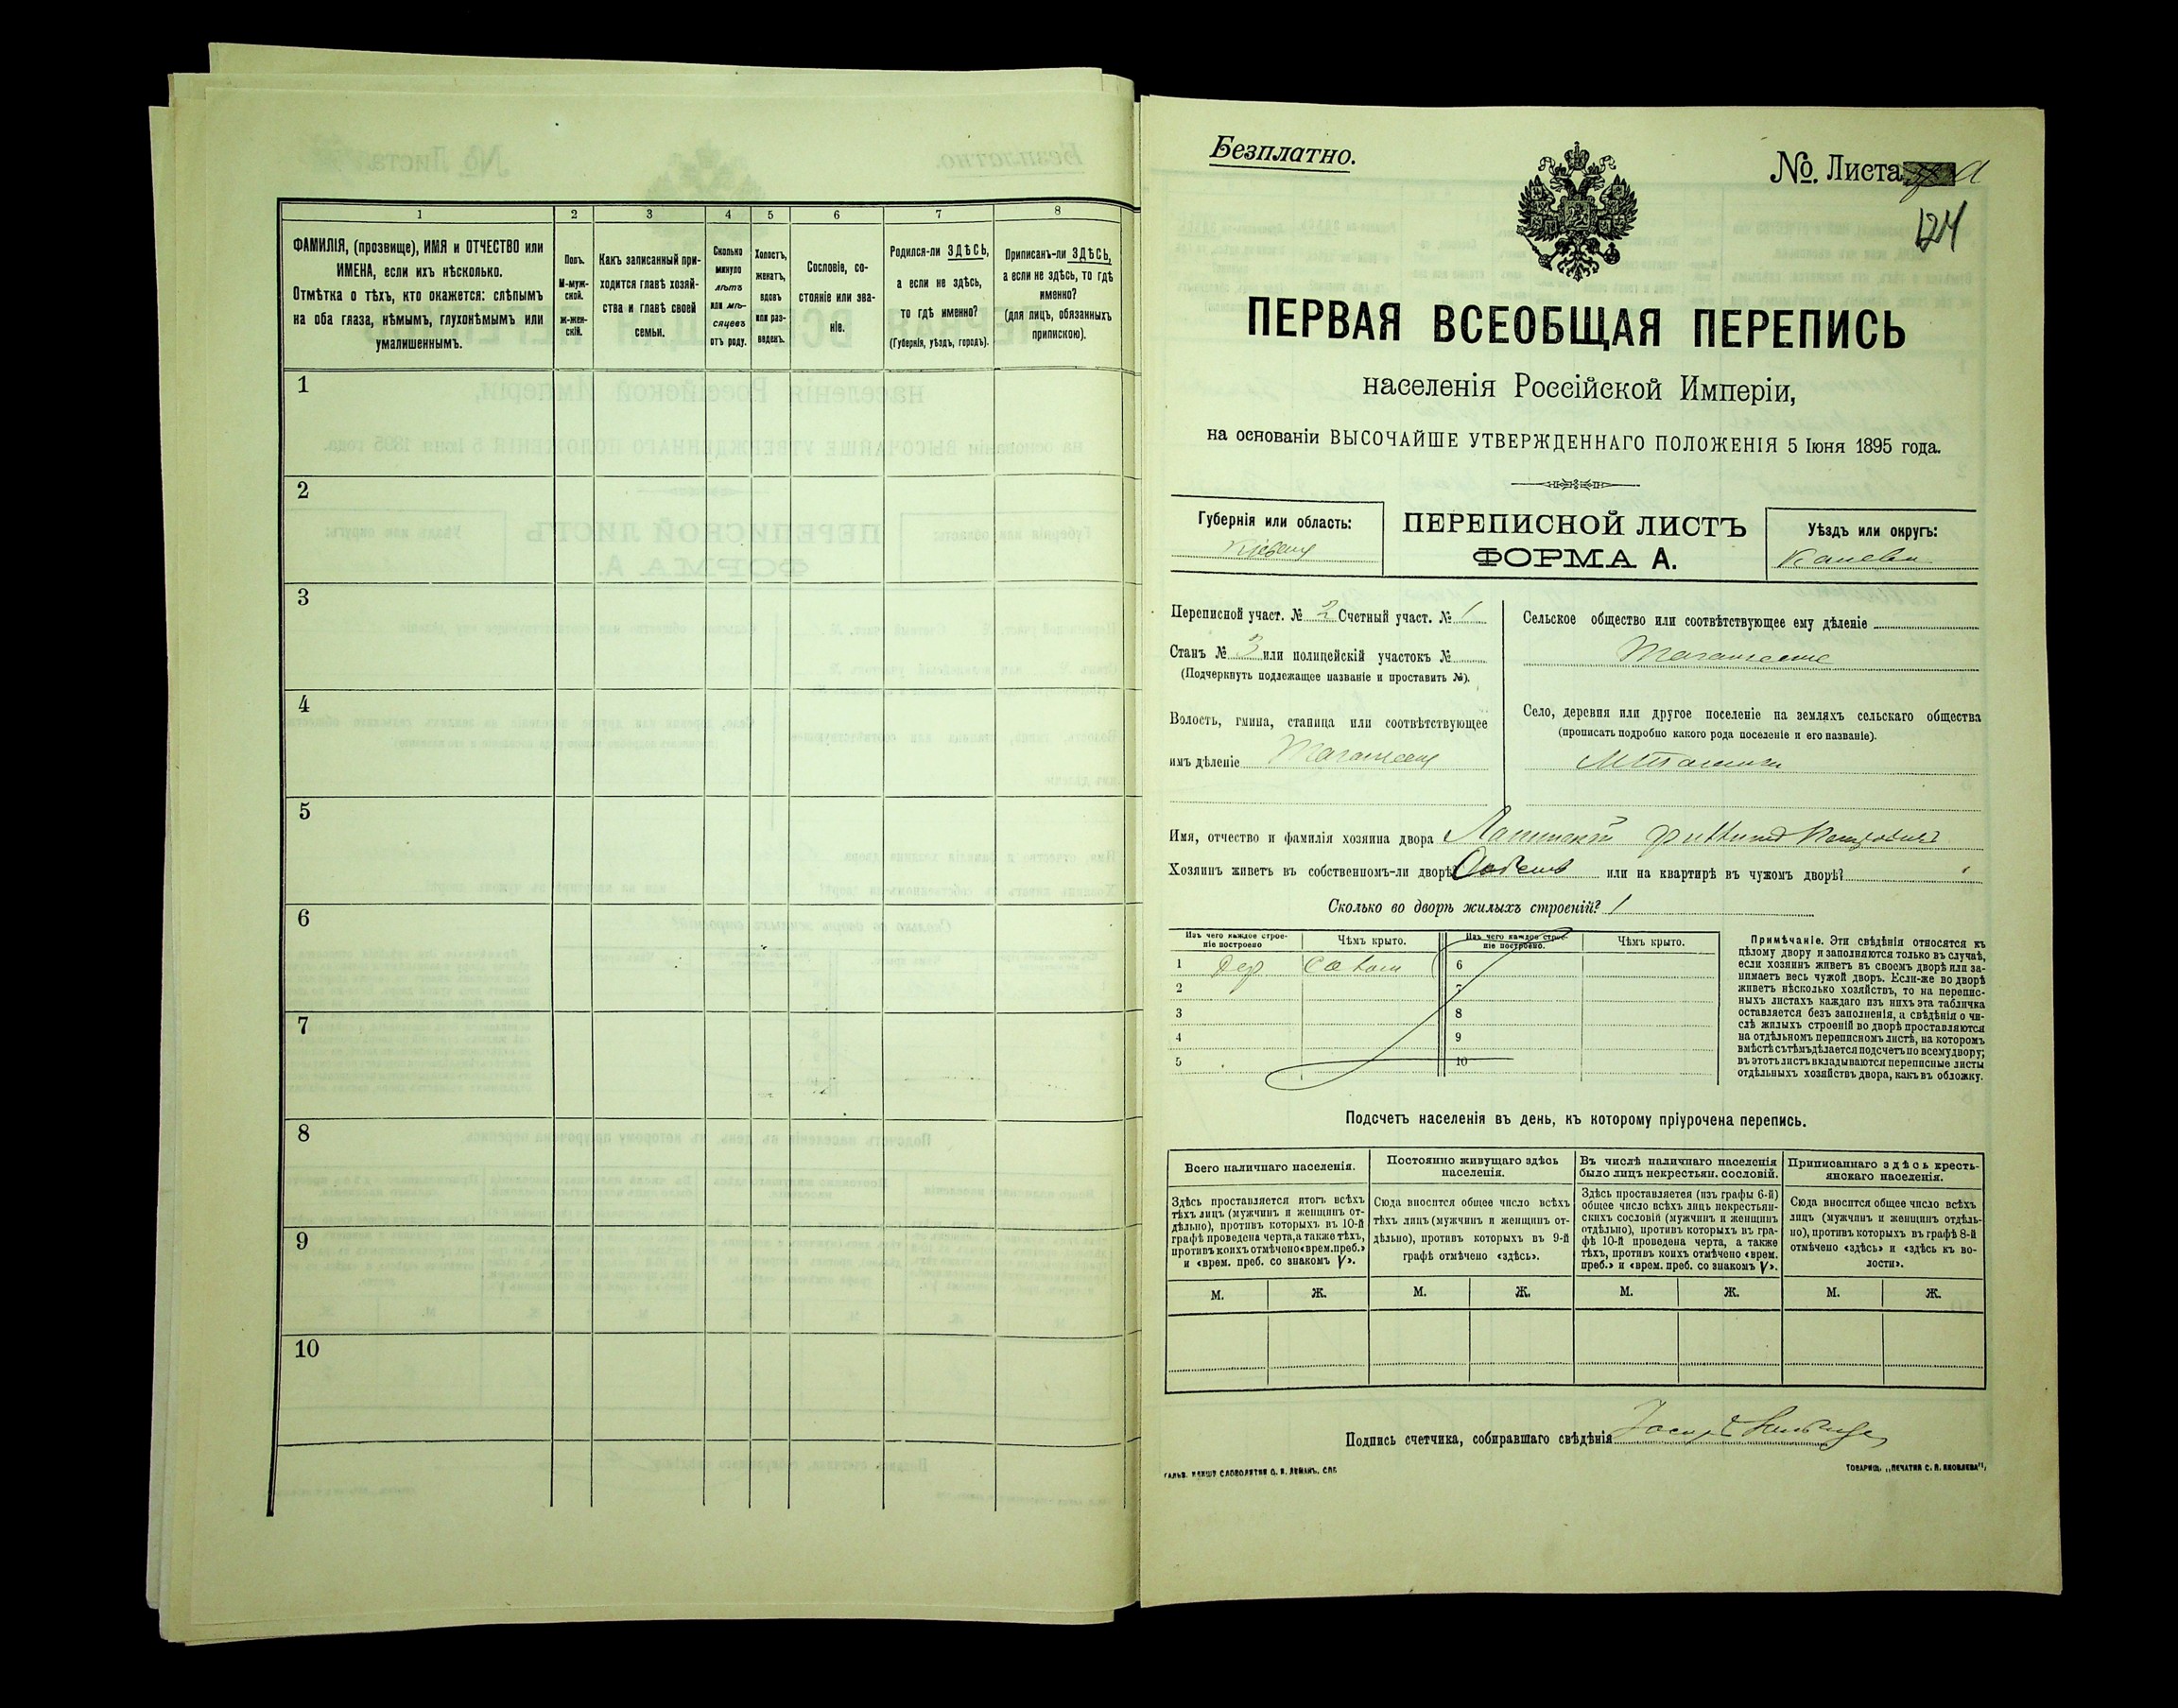 1
2
3
4
5
6
7
8
ФАМИЛІЯ, (прозвище), ИМЯ и ОТЧЕСТВО или
ИМЕНА, если ихъ нѣсколько.
Отмѣтка о тѣхъ, кто окажется: слѣпымъ
на оба глаза, нѣмымъ, глухонѣмымъ или
умалишеннымъ.
Полъ.
М-муж-
ской.
ж-жен-
скій.
Какъ записанный при-
ходится главѣ хозяй-
ства и главѣ своей
семьи.
Сколько
минуло
лѣтъ
или мѣ-
сяцевъ
отъ роду.
Холостъ,
женатъ,
вдовъ
или раз-
веденъ.
Сословіе, со-
стояніе или зва-
ніе.
Родился-ли ЗДѢСЬ,
а если не здѣсь,
то гдѣ именно?
(Губернія, уѣздъ, городъ).
Приписанъ-ли ЗДѢСЬ,
а если не здѣсь, то гдѣ
именно?
(для лицъ, обязанныхъ
припискою).
1
2
3
4
5
6
7
8
9
10
Безплатно.
№. Листа
124
ПЕРВАЯ ВСЕОБЩАЯ ПЕРЕПИСЬ
населенія Россійской Имперіи,
на основаніи ВЫСОЧАЙШЕ УТВЕРЖДЕННАГО ПОЛОЖЕНІЯ 5 Іюня 1895 года.
Губернія или область:
ПЕРЕПИСНОЙ ЛИСТЪ
ФОРМА А.
Уѣздъ или округъ:
Переписной участ. № 2 Счетный участ. № 1
Станъ № 3 или полицейскій участокъ №
(Подчеркнуть подлежащее названіе и проставить №).
Волость, гмина, станица или соотвѣтствующее
имъ дѣленіе
Сельское общество или соотвѣтствующее ему дѣленіе
Село, деревня или другое поселеніе на земляхъ сельскаго общества
(прописать подробно какого рода поселеніе и его названіе).
Имя, отчество и фамилія хозяина двора
Хозяинъ живетъ въ собственномъ-ли дворѣ или на квартирѣ въ чужомъ дворѣ?
Сколько во дворѣ жилыхъ строеній? 1
Изъ чего каждое строе-
ніе построено
Чѣмъ крыто.
Изъ чего каждое строе-
ніе построено.
Чѣмъ крыто.
1 Дер 6
2 7
3 8
4 9
5 10
Примѣчаніе. Эти свѣдѣнія относятся къ
цѣлому двору и заполняются только въ случаѣ,
если хозяинъ живетъ въ своемъ дворѣ или за-
нимаетъ весь чужой дворъ. Если-же во дворѣ
живетъ нѣсколько хозяйствъ, то на перепис-
ныхъ листахъ каждаго изъ нихъ эта табличка
оставляется безъ заполненія, а свѣдѣнія о чи-
слѣ жилыхъ строеній во дворѣ проставляются
на отдѣльномъ переписномъ листѣ, на которомъ
вмѣстѣ съ тѣмъ дѣлается подсчетъ по всему двору;
въ этотъ листъ вкладываются переписные листы
отдѣльныхъ хозяйствъ двора, какъ въ обложку.
Подсчетъ населенія въ день, къ которому пріурочена перепись.
Всего наличнаго населенія.
Здѣсь проставляется итогъ всѣхъ
тѣхъ лицъ (мужчинъ и женщинъ от-
дѣльно), противъ которыхъ въ 10-й
графѣ проведена черта, а также тѣхъ,
противъ коихъ отмѣчено «врем. преб.»
и «врем. преб. со знакомъ V».
Постоянно живущаго здѣсь
населенія.
Сюда вносится общее число всѣхъ
тѣхъ лицъ (мужчинъ и женщинъ от-
дѣльно), противъ которыхъ въ 9-й
графѣ отмѣчено «здѣсь».
Въ числѣ наличнаго населенія
было лицъ некрестьян. сословій.
Здѣсь проставляется (изъ графы 6-й)
общее число всѣхъ лицъ некрестьян-
скихъ сословій (мужчинъ и женщинъ
отдѣльно), противъ которыхъ въ гра-
фѣ 10-й проведена черта, а также
тѣхъ, противъ коихъ отмѣчено «врем.
преб.» и «врем. преб. со знакомъ V».
Приписаннаго здѣсь кресть-
янскаго населенія.
Сюда вносится общее число всѣхъ
лицъ (мужчинъ и женщинъ отдѣль-
но), противъ которыхъ въ графѣ 8-й
отмѣчено «здѣсь» и «здѣсь къ во-
лости».
М. Ж. М. Ж. М. Ж. М. Ж.
Подпись счетчика, собиравшаго свѣдѣнія
ТОВАРИЩ. „ПЕЧАТНЯ С. П. ЯКОВЛЕВА",